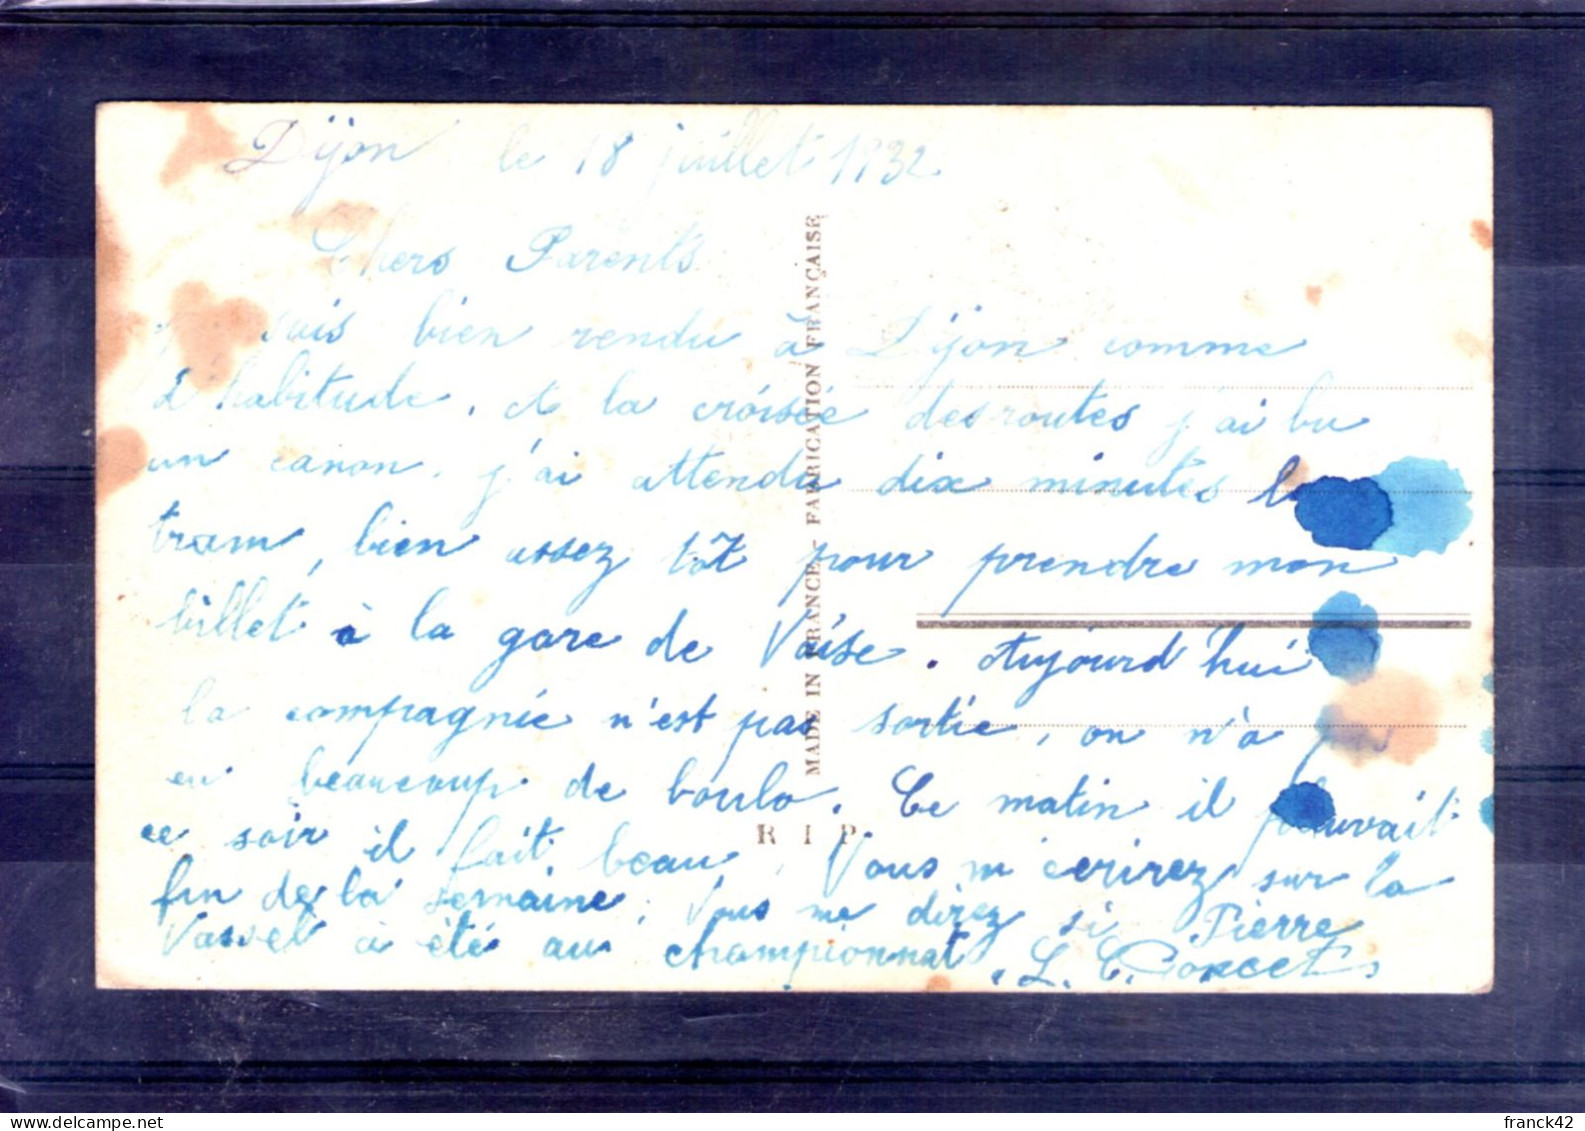 Dijon le 18 juillet 1932
Chers Parents
suis bien rendu à Dijon comme
d'habitude. A la croisée des routes j'ai bu
un canon. j'ai attendu dix minutes le
tram, bien assez tôt pour prendre mon
billet à la gare de Vaise. Aujourd'hui
la compagnie n'est pas sortie, on n'a pas
eu beaucoup de boulo. Ce matin il pleuvait
ce soir il fait beau. Vous m'ecrirez sur la
fin de la semaine, Vous me direz si Pierre
Vassel à été au championnat. L. C.
MADE IN FRANCE - FABRICATION FRANÇAISE
R I P
franck42